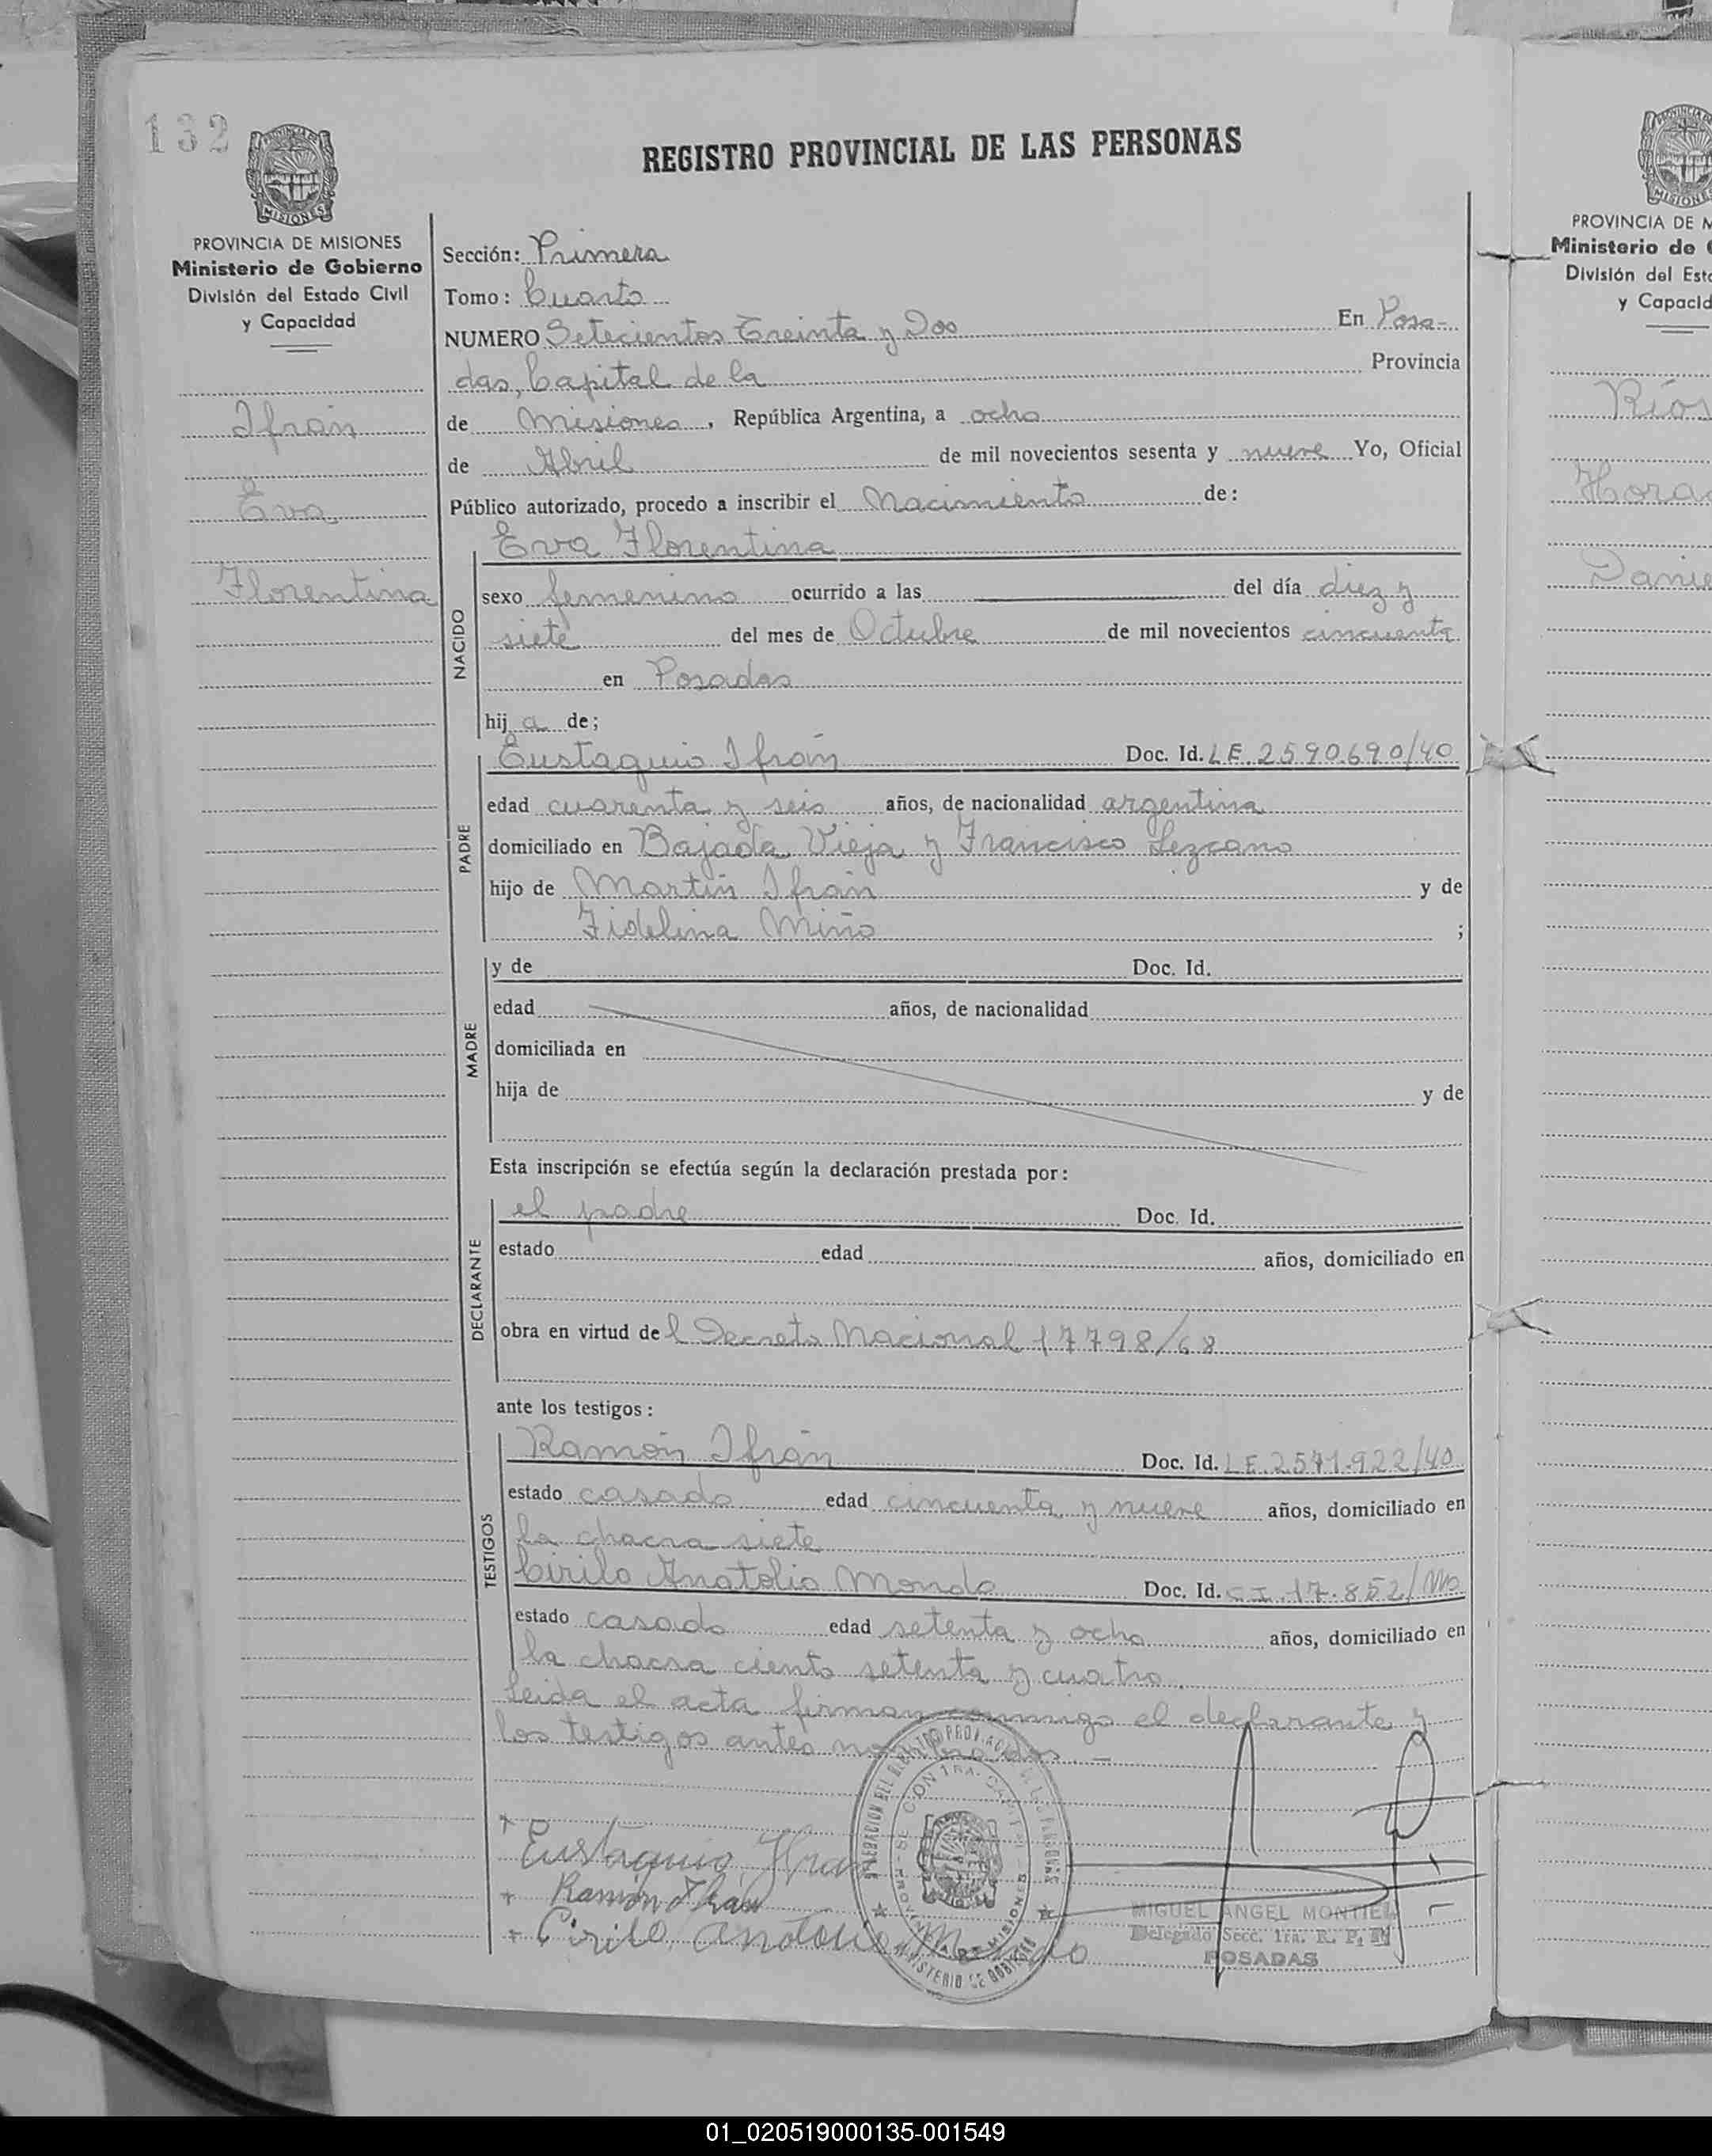 132
REGISTRO PROVINCIAL DE LAS PERSONAS
MISIONES
PROVINCIA DE MISIONES
Ministerio de Gobierno
División del Estado Civil
y Capacidad
Ifrán
Eva
Florentina
Sección: Primera
Tomo: Cuarto
NUMERO Setecientos Treinta y Dos En Posa-
das, Capital de la Provincia
de Misiones, República Argentina, a ocho
de Abril de mil novecientos sesenta y nueve Yo, Oficial
Público autorizado, procedo a inscribir el Nacimiento de:
Eva Florentina
NACIDO
sexo femenino ocurrido a las del día diez y
siete del mes de Octubre de mil novecientos cincuenta
en Posadas
hij a de;
PADRE
Eustaquio Ifrán Doc. Id. L E. 2590.690/40
edad cuarenta y seis años, de nacionalidad argentina
domiciliado en Bajada Vieja y Francisco Lezcano
hijo de Martín Ifrán y de
Fidelina Miño ;
MADRE
y de Doc. Id.
edad años, de nacionalidad
domiciliada en
hija de y de
Esta inscripción se efectúa según la declaración prestada por:
DECLARANTE
el padre Doc. Id.
estado edad años, domiciliado en
obra en virtud de l Decreto Nacional 17798/68
ante los testigos:
TESTIGOS
Ramón Ifrán Doc. Id. L E. 2541.922/40
estado casado edad cincuenta y nueve años, domiciliado en
la chacra siete
Cirilo Anatolio Mondo Doc. Id. C I. 17.852/Ms
estado casado edad setenta y ocho años, domiciliado en
la chacra ciento setenta y cuatro.
Leida el acta firman conmigo el declarante y
los testigos antes nombrados. —
+ Eustaquio Ifran
+ Ramón Ifrán
+ Cirilo Anatolio Mondo
MINISTERIO DE GOBIERNO
MIGUEL ANGEL MONTIEL
Delegado Secc. 1ra. R. P.
POSADAS
PROVINCIA DE M
Ministerio de G
División del Esta
y Capacid
Ríos
Horac
Danie
01_020519000135-001549